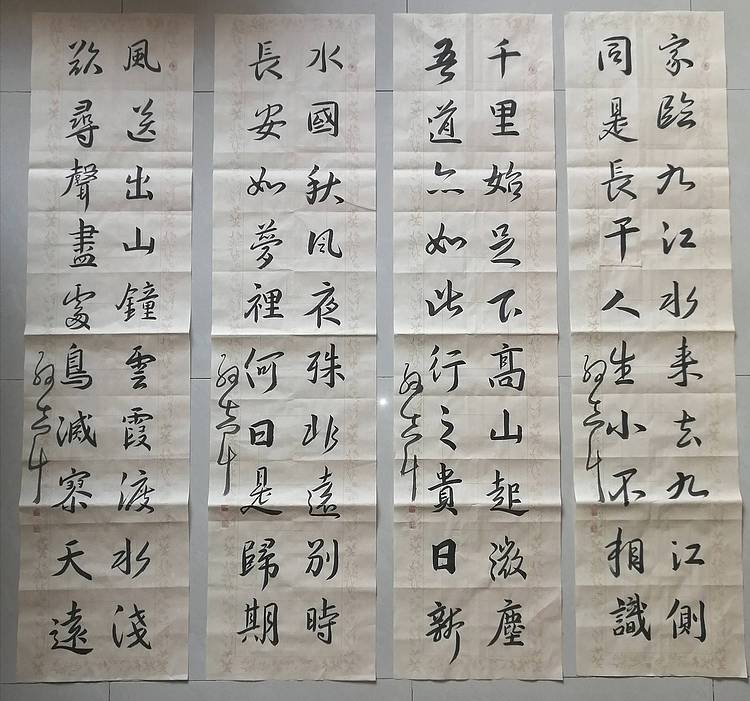 家臨九江水来去九江側
同是長干人生小不相識
千里始足下高山起微塵
吾道亦如此行之貴日新
水國秋风夜殊非遠別時
長安如夢裡何日是歸期
風送出山鐘雲霞渡水淺
欲尋聲盡處鳥滅寥天遠